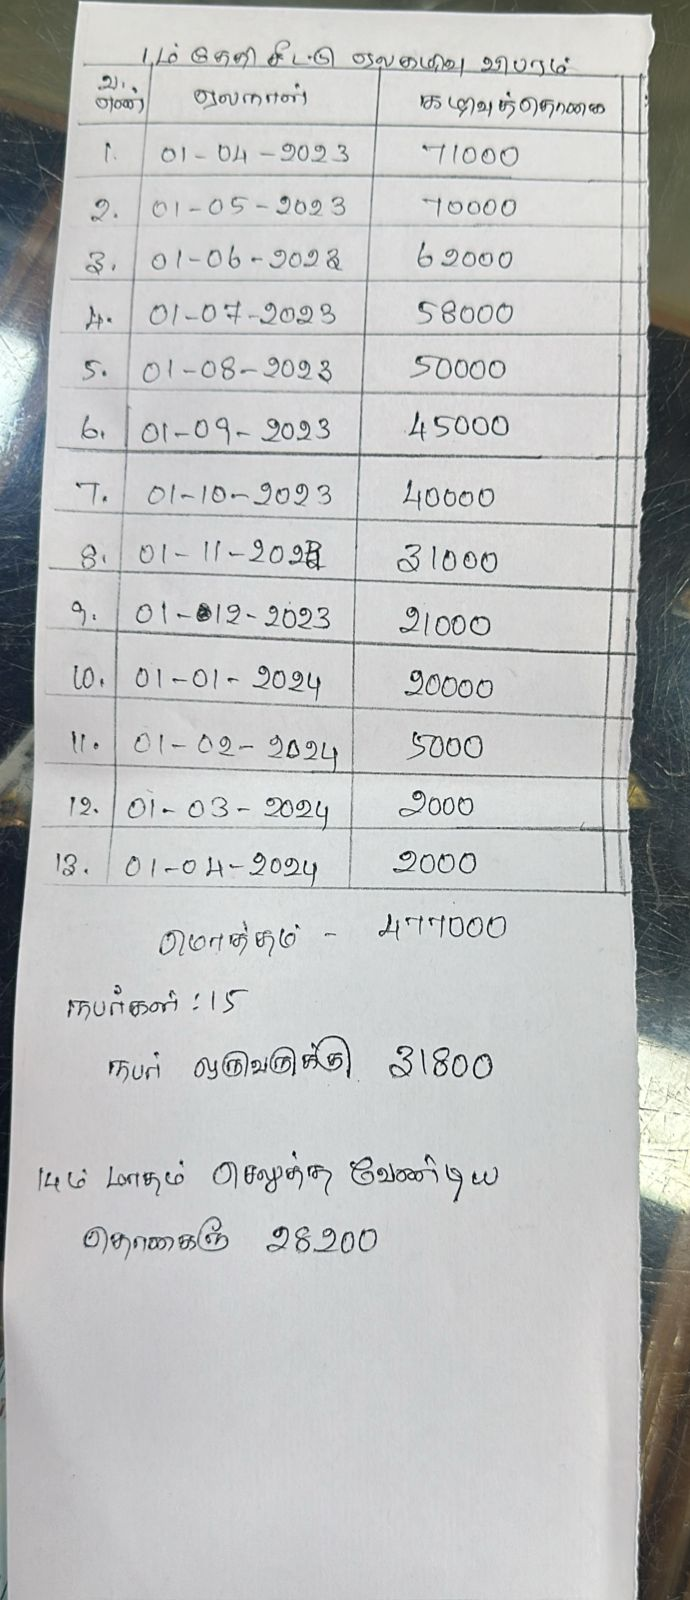 1ம் தேதி சீட்டு ஏலகழிவு விபரம்
வ. எண் ஏலநாள் கழிவுத்தொகை
1. 01-04-2023 71000
2. 01-05-2023 70000
3. 01-06-2023 62000
4. 01-07-2023 58000
5. 01-08-2023 50000
6. 01-09-2023 45000
7. 01-10-2023 40000
8. 01-11-2023 31000
9. 01-12-2023 21000
10. 01-01-2024 20000
11. 01-02-2024 5000
12. 01-03-2024 2000
13. 01-04-2024 2000
மொத்தம் - 477000
நபர்கள் : 15
நபர் ஒருவருக்கு 31800
14ம் மாதம் செலுத்த வேண்டிய
தொகை ரூ 28200